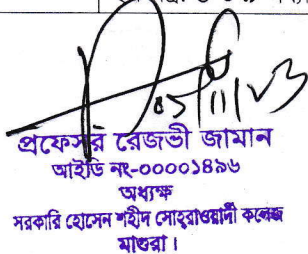 প্রফেসর রেজভী জামান
আইডি নং-০০০০১৪৯৬
অধ্যক্ষ
সরকারি হোসেন শহীদ সোহরাওয়ার্দী কলেজ
মাগুরা।